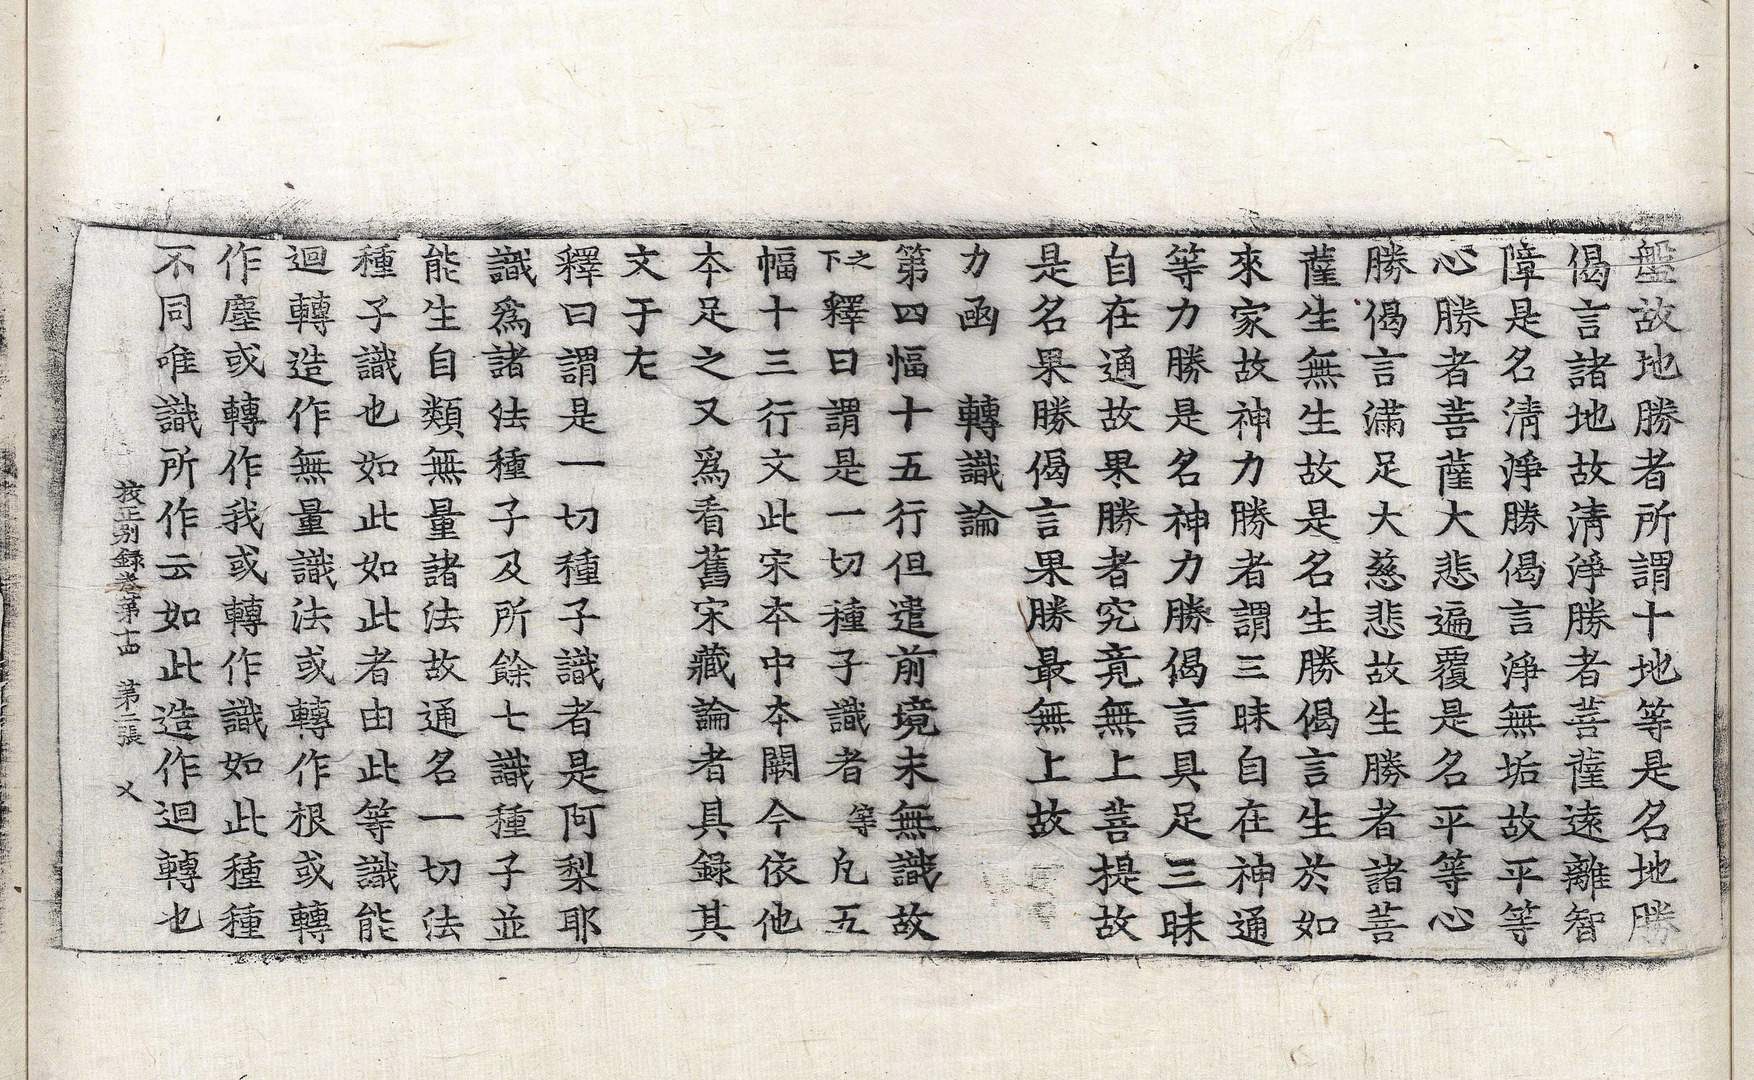 盤故地勝者所謂十地等是名地勝
偈言諸地故清淨勝者菩薩遠離智
障是名清淨勝偈言淨無垢故平等
心勝者菩薩大悲遍覆是名平等心
勝偈言滿足大慈悲故生勝者諸菩
薩生無生故是名生勝偈言生於如
來家故神力勝者謂三昧自在神通
等力勝是名神力勝偈言具足三昧
自在通故果勝者究竟無上菩提故
是名果勝偈言果勝最無上故
力函 轉識論
第四幅十五行但遣前境未無識故
之下釋曰謂是一切種子識者等凡五
幅十三行文此宋本中本闕今依他
本足之又爲看舊宋藏論者具録其
文于左
釋曰謂是一切種子識者是阿梨耶
識爲諸法種子及所餘七識種子並
能生自類無量諸法故通名一切法
種子識也如此如此者由此等識能
迴轉造作無量識法或轉作根或轉
作塵或轉作我或轉作識如此種種
不同唯識所作云如此造作迴轉也
挍正别録卷第十四 第二張 乂